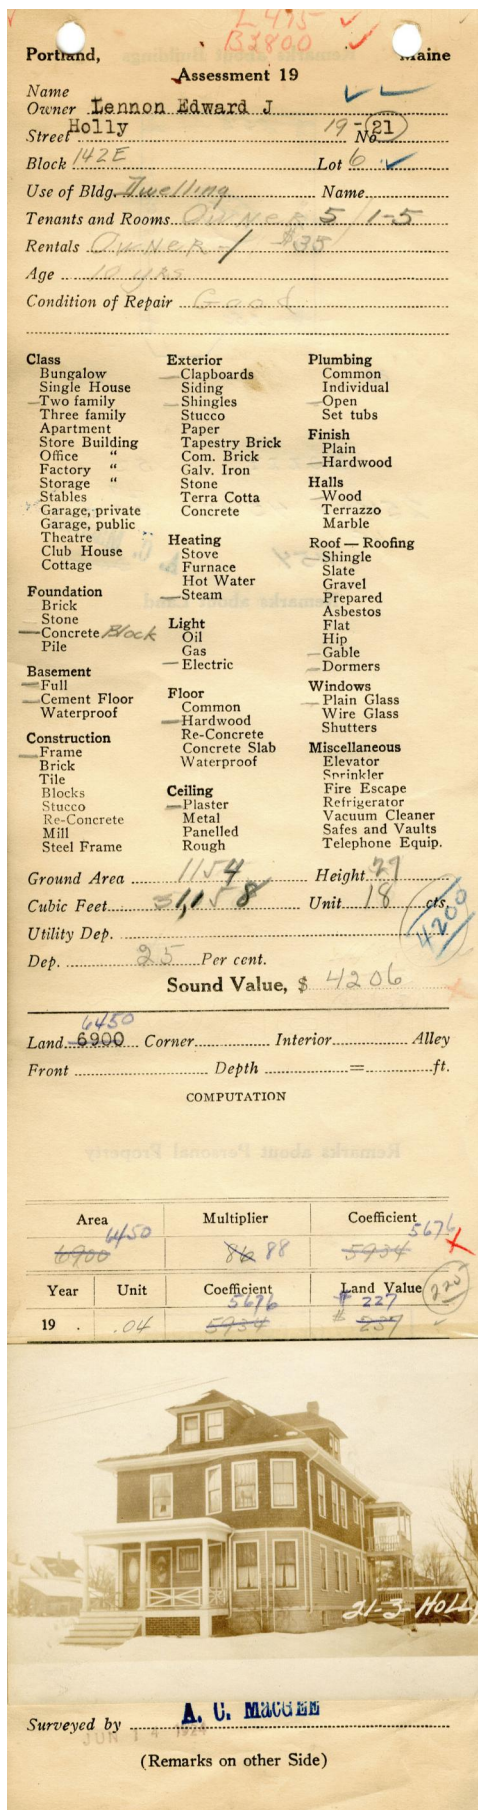 L 475
B 2800
Portland, Maine
Assessment 19
Name
Owner Lennon Edward J
Street Holly No. 19-21
Block 142E Lot 6
Use of Bldg. Dwelling Name
Tenants and Rooms OWNER 5 / 1-5
Rentals OWNER-1 $35
Age 10 yrs
Condition of Repair Good
Class
Bungalow
Single House
Two family
Three family
Apartment
Store Building
Office "
Factory "
Storage "
Stables
Garage, private
Garage, public
Theatre
Club House
Cottage
Foundation
Brick
Stone
Concrete Block
Pile
Basement
Full
Cement Floor
Waterproof
Construction
Frame
Brick
Tile
Blocks
Stucco
Re-Concrete
Mill
Steel Frame
Exterior
Clapboards
Siding
Shingles
Stucco
Paper
Tapestry Brick
Com. Brick
Galv. Iron
Stone
Terra Cotta
Concrete
Heating
Stove
Furnace
Hot Water
Steam
Light
Oil
Gas
Electric
Floor
Common
Hardwood
Re-Concrete
Concrete Slab
Waterproof
Ceiling
Plaster
Metal
Panelled
Rough
Plumbing
Common
Individual
Open
Set tubs
Finish
Plain
Hardwood
Halls
Wood
Terrazzo
Marble
Roof — Roofing
Shingle
Slate
Gravel
Prepared
Asbestos
Flat
Hip
Gable
Dormers
Windows
Plain Glass
Wire Glass
Shutters
Miscellaneous
Elevator
Sprinkler
Fire Escape
Refrigerator
Vacuum Cleaner
Safes and Vaults
Telephone Equip.
Ground Area 1154 Height 27
Cubic Feet 31,158 Unit 18 cts.
4200
Utility Dep.
Dep. 25 Per cent.
Sound Value, $ 4206
6450
Land 6900 Corner Interior Alley
Front Depth = ft.
COMPUTATION
Area Multiplier Coefficient
6450 5676
6900 86 88 5934
Year Unit Coefficient Land Value 225
5676 $ 227
19 . .04 5934 $ 237
21-3 HOLLY
Surveyed by A. C. MacGEE
JUN 14 1924
(Remarks on other Side)